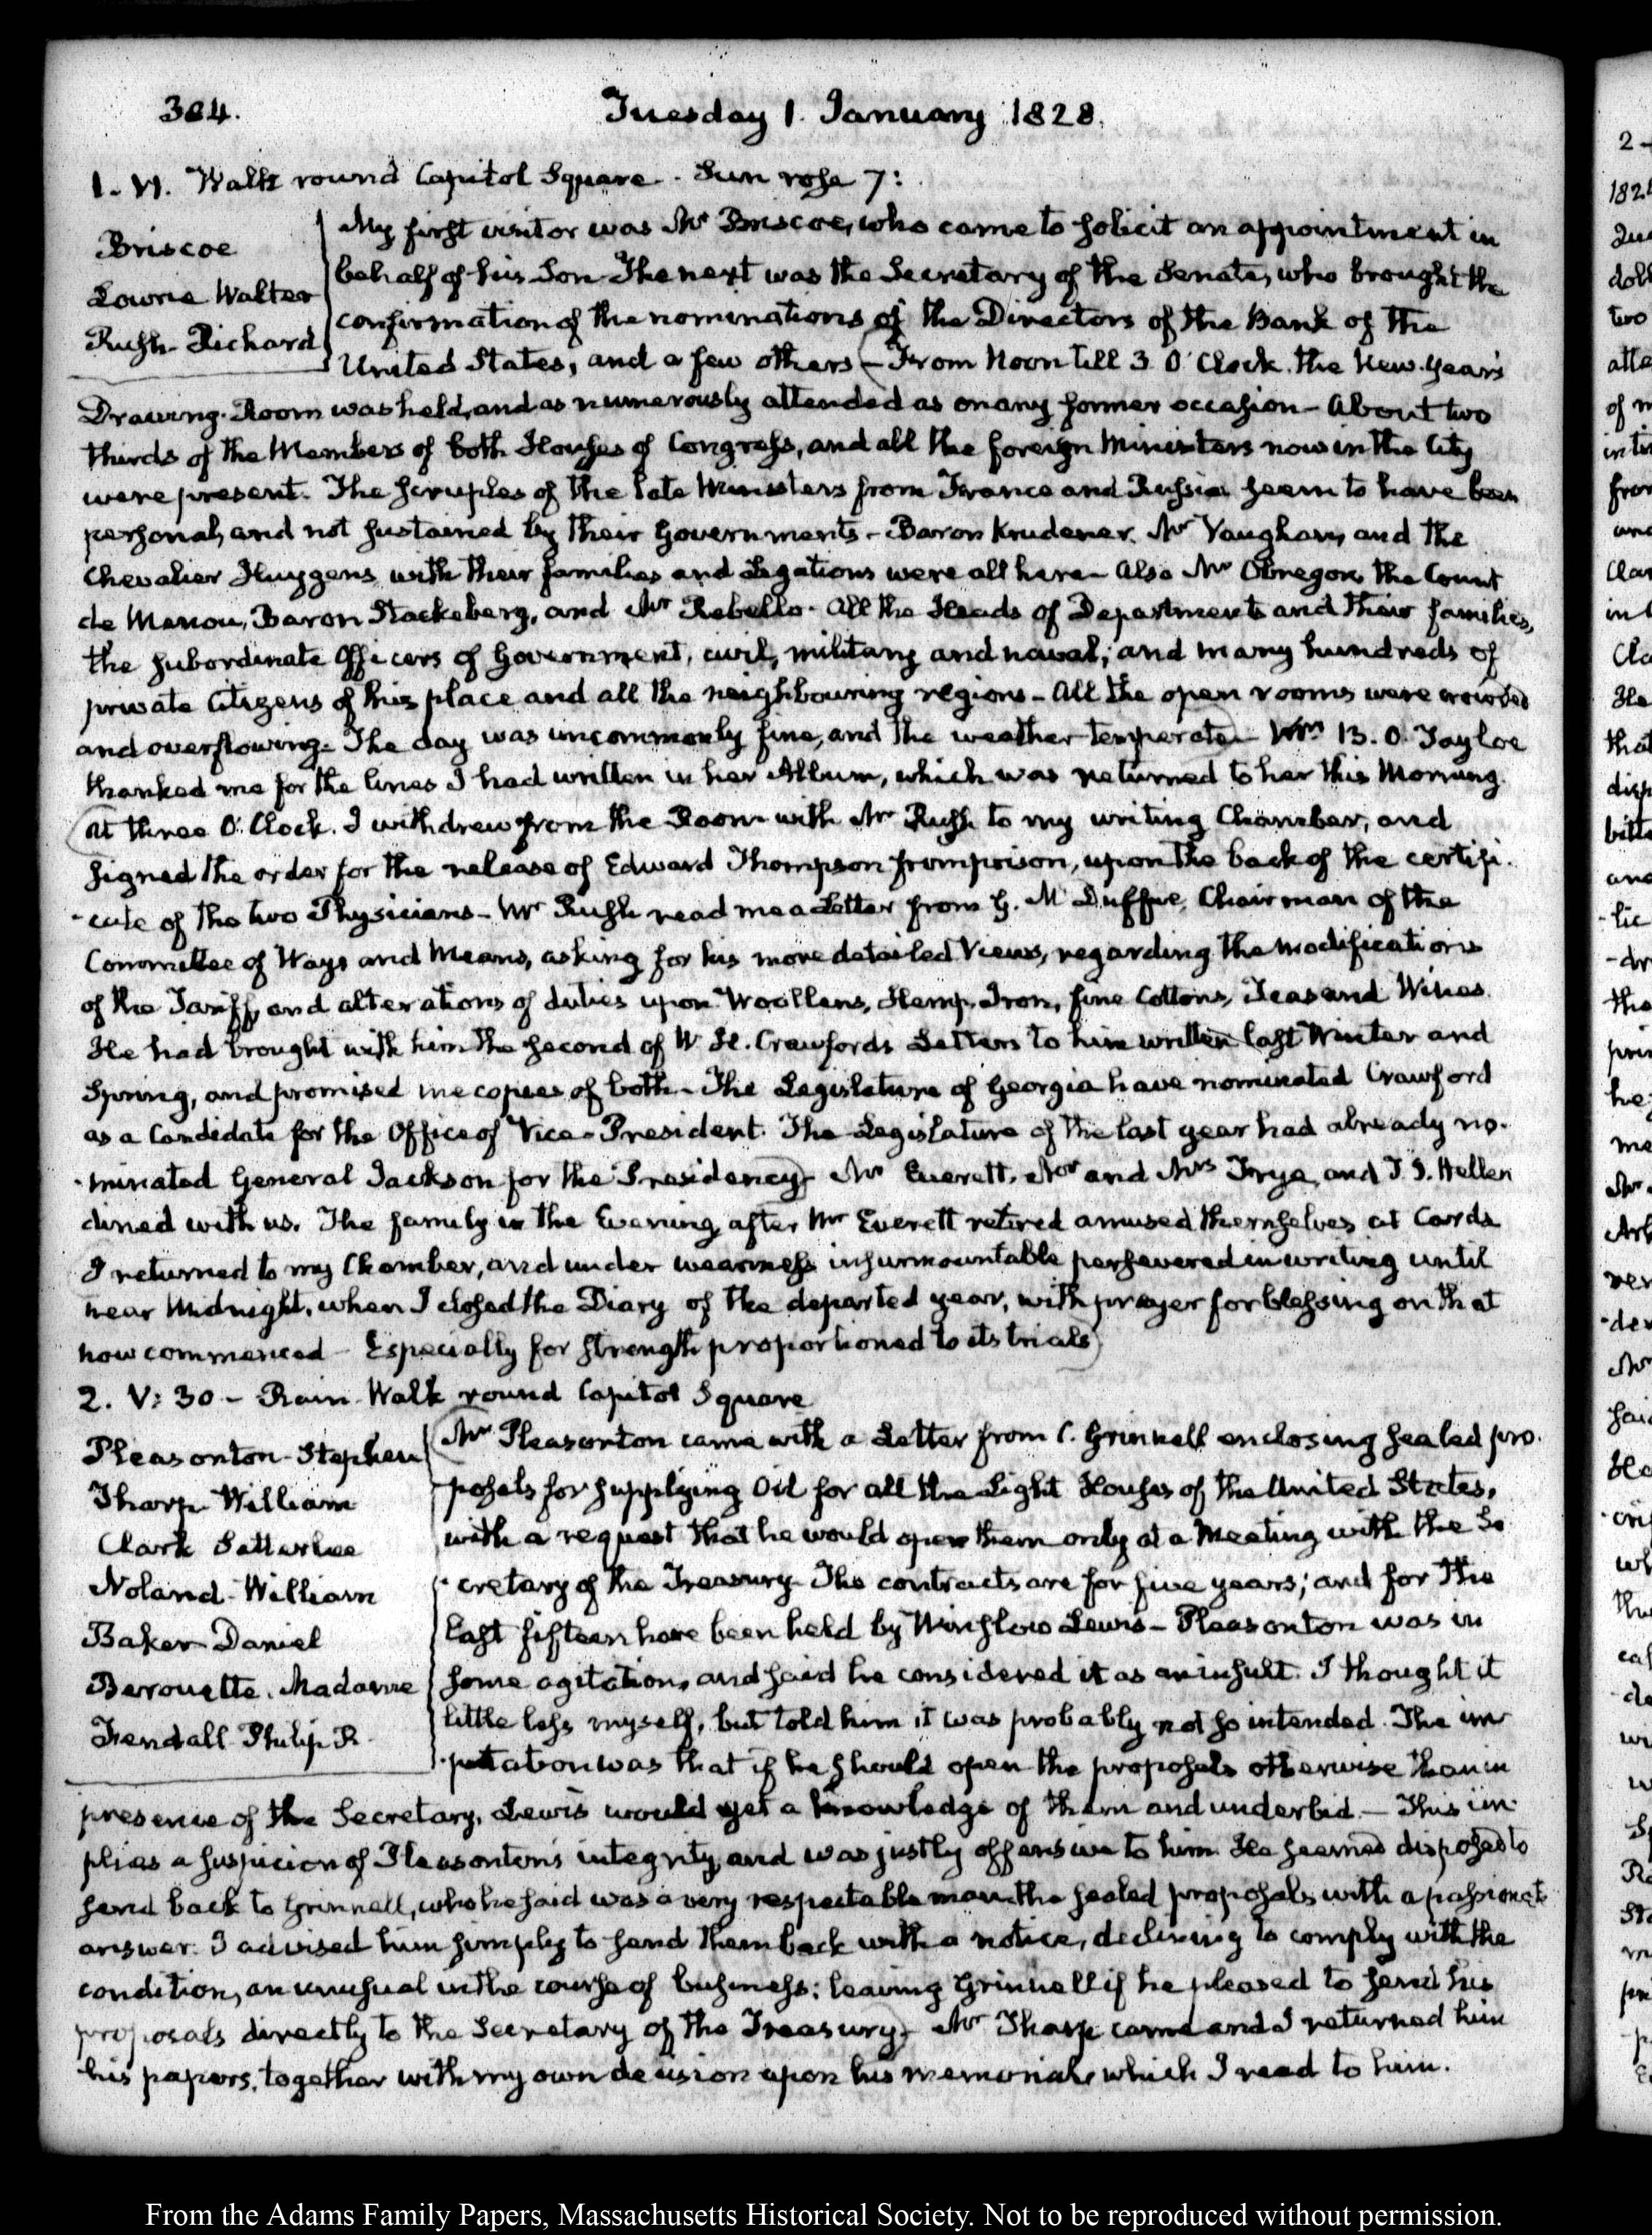 304.
Tuesday 1. January 1828.
1. VI. Walk round Capitol Square. Sun rose 7:
Briscoe
Lowrie Walter
Rush Richard
My first visitor was Mr Briscoe, who came to solicit an appointment in
behalf of his Son The next was the Secretary of the Senate, who brought the
confirmation of the nominations of the Directors of the Bank of the
United States, and a few others — From Noon till 3 O'Clock. the New-Year's
Drawing-Room was held, and as numerously attended as on any former occasion — About two
thirds of the Members of both Houses of Congress, and all the foreign Ministers now in the City
were present. The scruples of the late Ministers from France and Russia seem to have been
personal, and not sustained by their Governments — Baron Krudener, Mr Vaughan, and the
Chevalier Huygens with their families and Legations were all here — Also Mr Obregon, the Count
de Menou, Baron Stackelberg, and Mr Rebello. All the Heads of Departments and their families,
the subordinate Officers of Government, civil, military and naval; and many hundreds of
private Citizens of this place and all the neighbouring regions — All the open rooms were crowded
and overflowing. The day was uncommonly fine, and the weather temperate — Mrs B. O. Tayloe
thanked me for the lines I had written in her Album, which was returned to her this Morning.
At three O'Clock. I withdrew from the Room with Mr Rush to my writing Chamber, and
signed the order for the release of Edward Thompson from prison, upon the back of the certifi-
-cate of the two Physicians — Mr Rush read me a Letter from G. McDuffie, Chairman of the
Committee of Ways and Means, asking for his more detailed Views, regarding the modifications
of the Tariff, and alterations of duties upon Woollens, Hemp, Iron, fine Cottons, Teas and Wines.
He had brought with him the second of W. H. Crawford's Letters to him written last Winter and
Spring, and promised me copies of both — The Legislature of Georgia have nominated Crawford
as a Candidate for the Office of Vice-President. The Legislature of the last year had already no-
-minated General Jackson for the Presidency — Mr Everett, Mr and Mrs Frye, and J. J. Hellen
dined with us. The family in the Evening after Mr Everett retired amused themselves at Cards
I returned to my Chamber, and under weariness insurmountable persevered in writing until
near Midnight, when I closed the Diary of the departed year, with prayer for blessing on that
now commenced — Especially for strength proportioned to its trials
2. V: 30 — Rain. Walk round Capitol Square
Pleasonton Stephen
Tharp William
Clark Satterlee
Noland William
Baker Daniel
Berouette. Madame
Fendall Philip R.
Mr Pleasonton came with a Letter from C. Grinnell enclosing sealed pro-
posals for supplying Oil for all the Light Houses of the United States,
with a request that he would open them only at a Meeting with the Se
-cretary of the Treasury. The contracts are for five years; and for the
last fifteen have been held by Winslow Lewis — Pleasonton was in
some agitation, and said he considered it as an insult. I thought it
little less myself, but told him it was probably not so intended. The im
-putation was that if he should open the proposals otherwise than in
presence of the Secretary, Lewis would get a knowledge of them and underbid. — This im-
plies a suspicion of Pleasonton's integrity, and was justly offensive to him. He seemed disposed to
send back to Grinnell, who he said was a very respectable man the sealed proposals, with a passionate
answer. I advised him simply to send them back with a notice, declining to comply with the
condition, as unusual in the course of business; leaving Grinnell if he pleased to send his
proposals directly to the Secretary of the Treasury — Mr Tharp came and I returned him
his papers, together with my own decision upon his memorial, which I read to him.
From the Adams Family Papers, Massachusetts Historical Society. Not to be reproduced without permission.